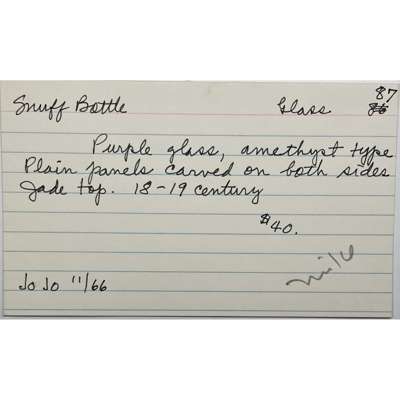 87
Snuff Bottle Glass 86
Purple glass, amethyst type
Plain panels carved on both sides
Jade top. 18-19 century
$40.
Jo Jo 11/66